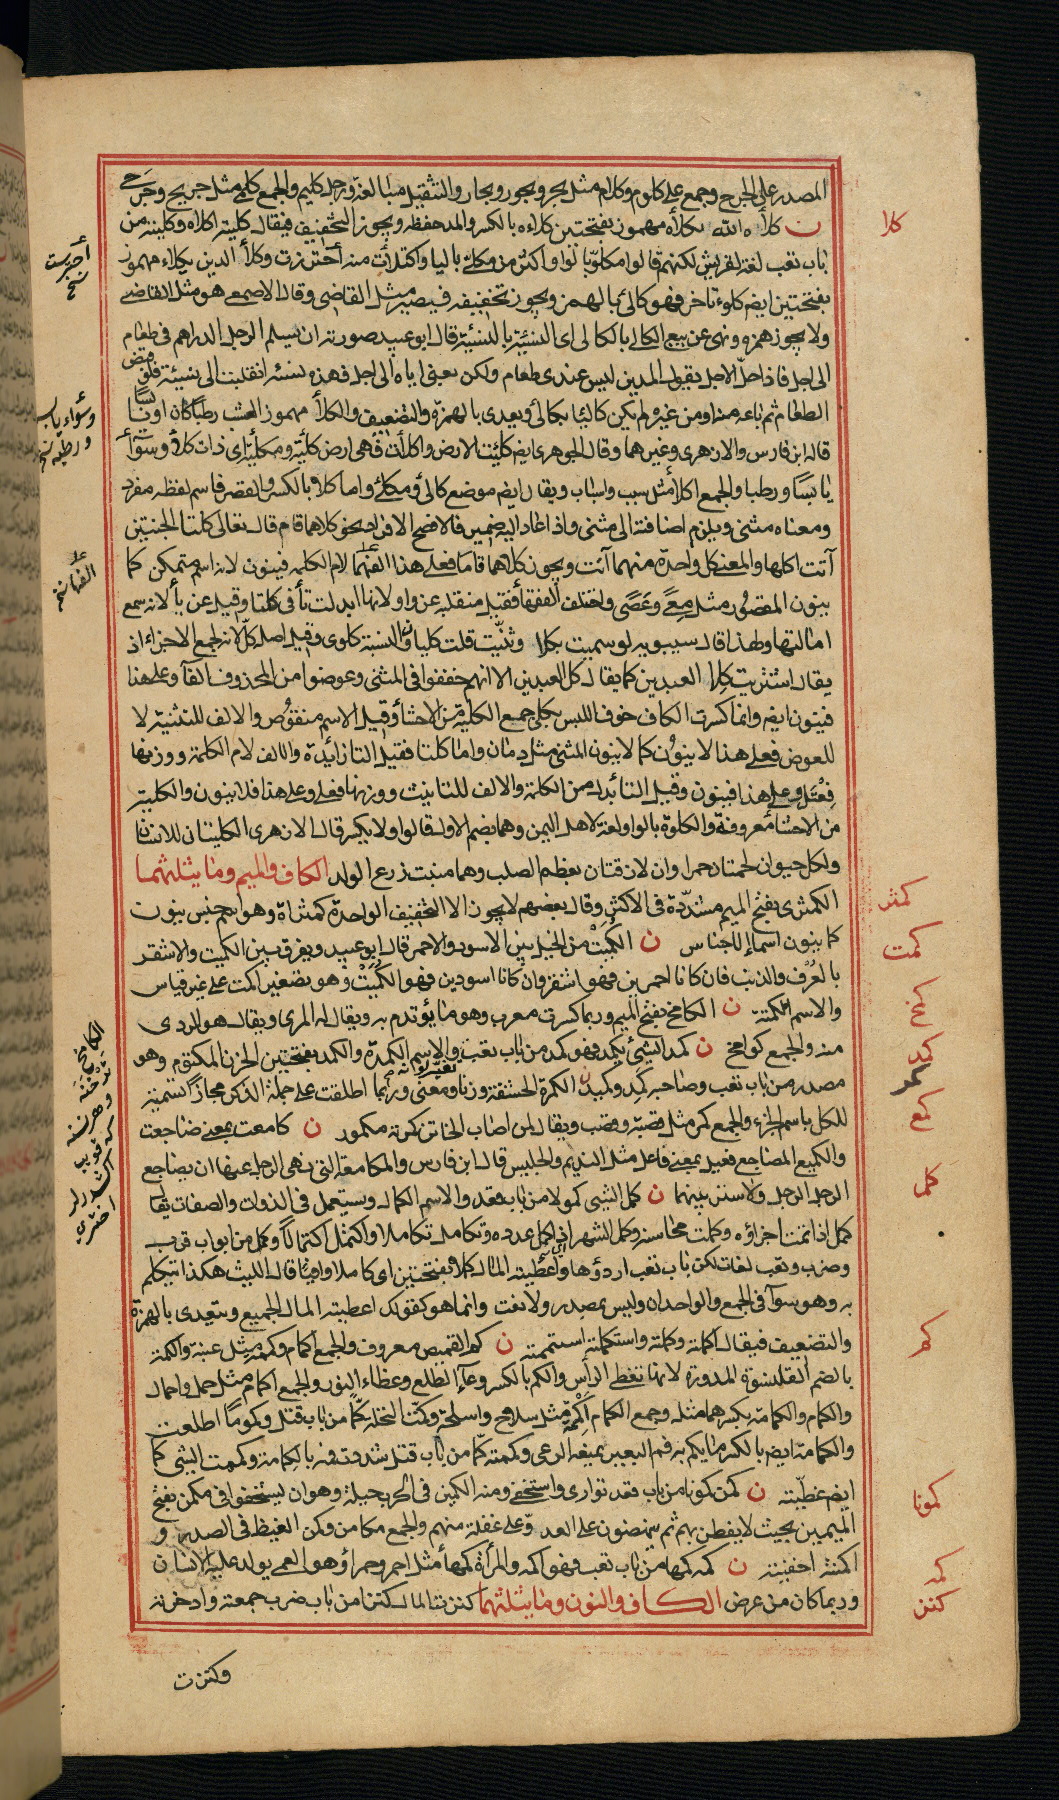 المصدر على الجرح وجمع على كلوم وكلام مثل بحر وبحور وبحار والتثقيل مبالغة ورجل كليم والجمع كلمى مثل جريح وجرحى
كلا
ن كلأه الله يكلأه مهموز بفتحتين كلاءة بالكسر والمد حفظه ويجوز التخفيف فيقال كليته اكلاه وكليته من
باب تعب لغة لقريش لكنهم قالوا مكلو بالواو اكثر من مكلي بالياء واكتلات منه احترزت وكلأ الدين يكلاء مهموز
بفتحتين ايضا كلوء تاخر فهو كالئ بالهمز ويجوز تخفيفه فيصير مثل القاضي وقال الاصمعي هو مثل القاضي
ولا يجوز همزه ونهى عن بيع الكالئ بالكالئ اى النسيئة بالنسيئة قال ابو عبيد صورته ان يسلم الرجل الدراهم فى طعام
الى اجل فاذا حل الاجل يقول المدين ليس عندى طعام ولكن بعنى اياه الى اجل فهذه نسيئة انقلبت الى نسيئة فلو قبض
الطعام ثم باعه منه او من غيره لم يكن كالئا بكالئ ويعدى بالهمزة والتضعيف والكلأ مهموز العشب رطبا كان او يابسا
قاله ابن فارس والازهرى وغيرهما وقال الجوهرى ايضا كلئت الارض واكلأت فهى ارض كلئة ومكلئة اى ذات كلأ وسواء
يابسا ورطبا والجمع اكلأ مثل سبب واسباب ويقال ايضا موضع كالئ ومكلئ واما كلا بالكسر والقصر فاسم لفظه مفرد
ومعناه مثنى ويلزم اضافته الى مثنى واذا عاد اليه ضمير فالافصح الافراد نحو كلاهما قام قال تعالى كلتا الجنتين
آتت اكلها والمعنى كل واحدة منهما آتت ويجوز كلاهما قاما فعلى هذا الفهما لام الكلمه فينون لانه اسم متمكن كما
ينون المقصور مثل معى وعصى واختلف الفقها فقيل منقلبه عن واو لانها ابدلت تأ فى كلتا وقيل عن يأ لانه سمع
امالتها ولهذا قال سيبويه لو سميت بكلا وثنيت قلت كليان والنسبة كلوى وقيل اصله كل لانه لجمع الاجزاء اذ
يقال اشتريت كلا العبدين كما يقال كل العبدين الا انهم خففوا فى المثنى وعوضوا من المحذوف الفا وعلى هذا
فينون ايضا وانما كسرت الكاف خوف اللبس بكلى جمع الكلية من الاحشأ وقيل الاسم منقوص والالف للتثنية لا
للعوض فعلى هذا لا ينون كما لا ينون المثنى مثل دمان واما كلتا فقيل التا زائدة والالف لام الكلمة ووزنها
فعتل وعلى هذا فينون وقيل التا بدل من الكلمة والالف للتانيث ووزنها فعلى وعلى هذا فلا ينون والكلية
من الاحشأ معروفة والكلوة بالواو لغة لاهل اليمن وهما بضم الاول قالوا ولا يكسر قال الازهرى الكليتان للانسان
ولكل حيوان لحمتان حمراوان لازقتان بعظم الصلب وهما منبت زرع الولد الكاف والميم وما يثلثهما
كمثر
الكمثرى بفتح الميم مشددة فى الاكثر وقال بعضهم لا يجوز الا التخفيف الواحدة كمثراة وهو اسم جنس ينون
كمت
كما ينون اسماء الاجناس ن الكميت من الخيل بين الاسود والاحمر قال ابو عبيد ويفرق بين الكميت والاشقر
بالعرف والذنب فان كانا احمرين فهو اشقر وان كانا اسودين فهو الكميت وهو تصغير اكمت على غير قياس
كمخ
والاسم الكمتة ن الكامخ بفتح الميم وربما كسرت معرب وهو ما يؤتدم به ويقال له المرى ويقال هو الردى
كمد
منه والجمع كوامخ ن كمد الشئ يكمد فهو كمد من باب تعب تغير لونه والاسم الكمدة والكمد بفتحتين الحزن المكتوم وهو
كمر
مصدر من باب تعب وصاحبه كمد وكميد ن الكمرة الحشفة وزنا ومعنى وربما اطلقت على جملة الذكر مجازا تسمية
كمع
للكل باسم الجزء والجمع كمر مثل قصبة وقصب ويقال لمن اصاب الخاتن كمرته مكمور ن كامعت بمعنى ضاجعت
والكميع المضاجع فعيل بمعنى فاعل مثل النديم والجليس قال ابن فارس والمكامعة التى نهى الرجل عنها ان يضاجع
كمل
الرجل الرجل ولا ستر بينهما ن كمل الشئ كمولا من باب قعد والاسم الكمال ويستعمل فى الذوات والصفات يقال
كمل اذا تمت اجزاؤه وكملت محاسنه وكمل الشهر اى كمل عدده وتكامل تكاملا واكتمل اكتمالا وكمل من ابواب قرب
وضرب وتعب لغات لكن باب تعب اردؤها واعطيته المال كملا بفتحتين اى كاملا وافيا قال الليث هكذا يتكلم
به وهو سوآ فى الجمع والواحدان وليس بمصدر ولا نعت وانما هو كقولك اعطيته المال الجميع ويتعدى بالهمزة
كم
والتضعيف فيقال اكملته وكملته واستكملته استتممته ن كم القميص معروف والجمع اكمام وكممة مثل عنبة والكمة
بالضم القلنسوة المدورة لانها تغطى الرأس والكم بالكسر وعاء الطلع وغطاء النور والجمع اكمام مثل حمل واحمال
والكمام والكمامة بكسرهما مثله وجمع الكمام اكمة مثل سلاح واسلحة وكمت النخلة كما من باب قتل وكموما اطلعت
والكمامة ايضا بالكسر ما يكم به فم البعير يمنعه الرعى وكممته كما من باب قتل شددت فمه بالكمامة وكممت الشئ كما
كمونا
ايضا غطيته ن كمن كمونا من باب قعد توارى واستخفى ومنه الكمين فى الحرب حيلة وهو ان يستخفوا فى مكمن بفتح
الميمين بحيث لا يفطن بهم ثم ينهضون على العدو على غفلة منهم والجمع مكامن وكمن الغيظ فى الصدر و
كمه
اكمنته اخفيته ن كمه كمها من باب تعب فهو اكمه والمرأة كمهاء مثل احمر وحمراؤ هو العمى يولد عليه الانسان
كنز
وربما كان من عرض الكاف والنون وما يثلثهما كنزت المال كنزا من باب ضرب جمعته وادخرته
وكنزت
احترست نسخ